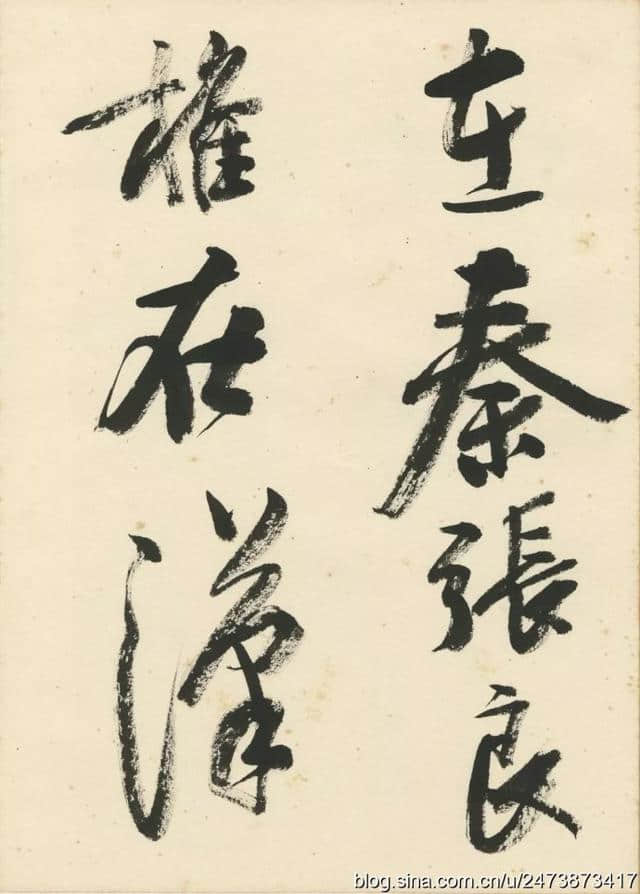 在秦張良
椎在漢
blog.sina.com.cn/u/2473873417